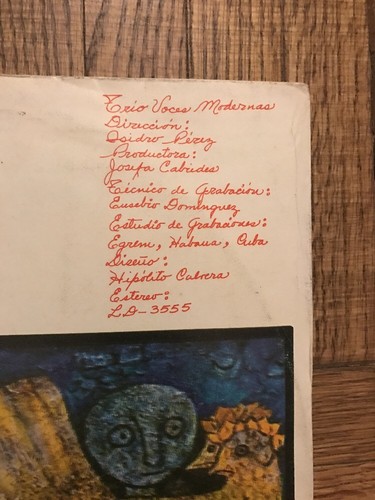 Trío Voces Modernas
Dirección:
Isidro Pérez
Productora:
Josefa Cabrides
Técnico de Grabación:
Eusebio Domínguez
Estudio de Grabaciones:
Egrem, Habana, Cuba
Diseño:
Hipólito Cabrera
Estereo:
LD-3555